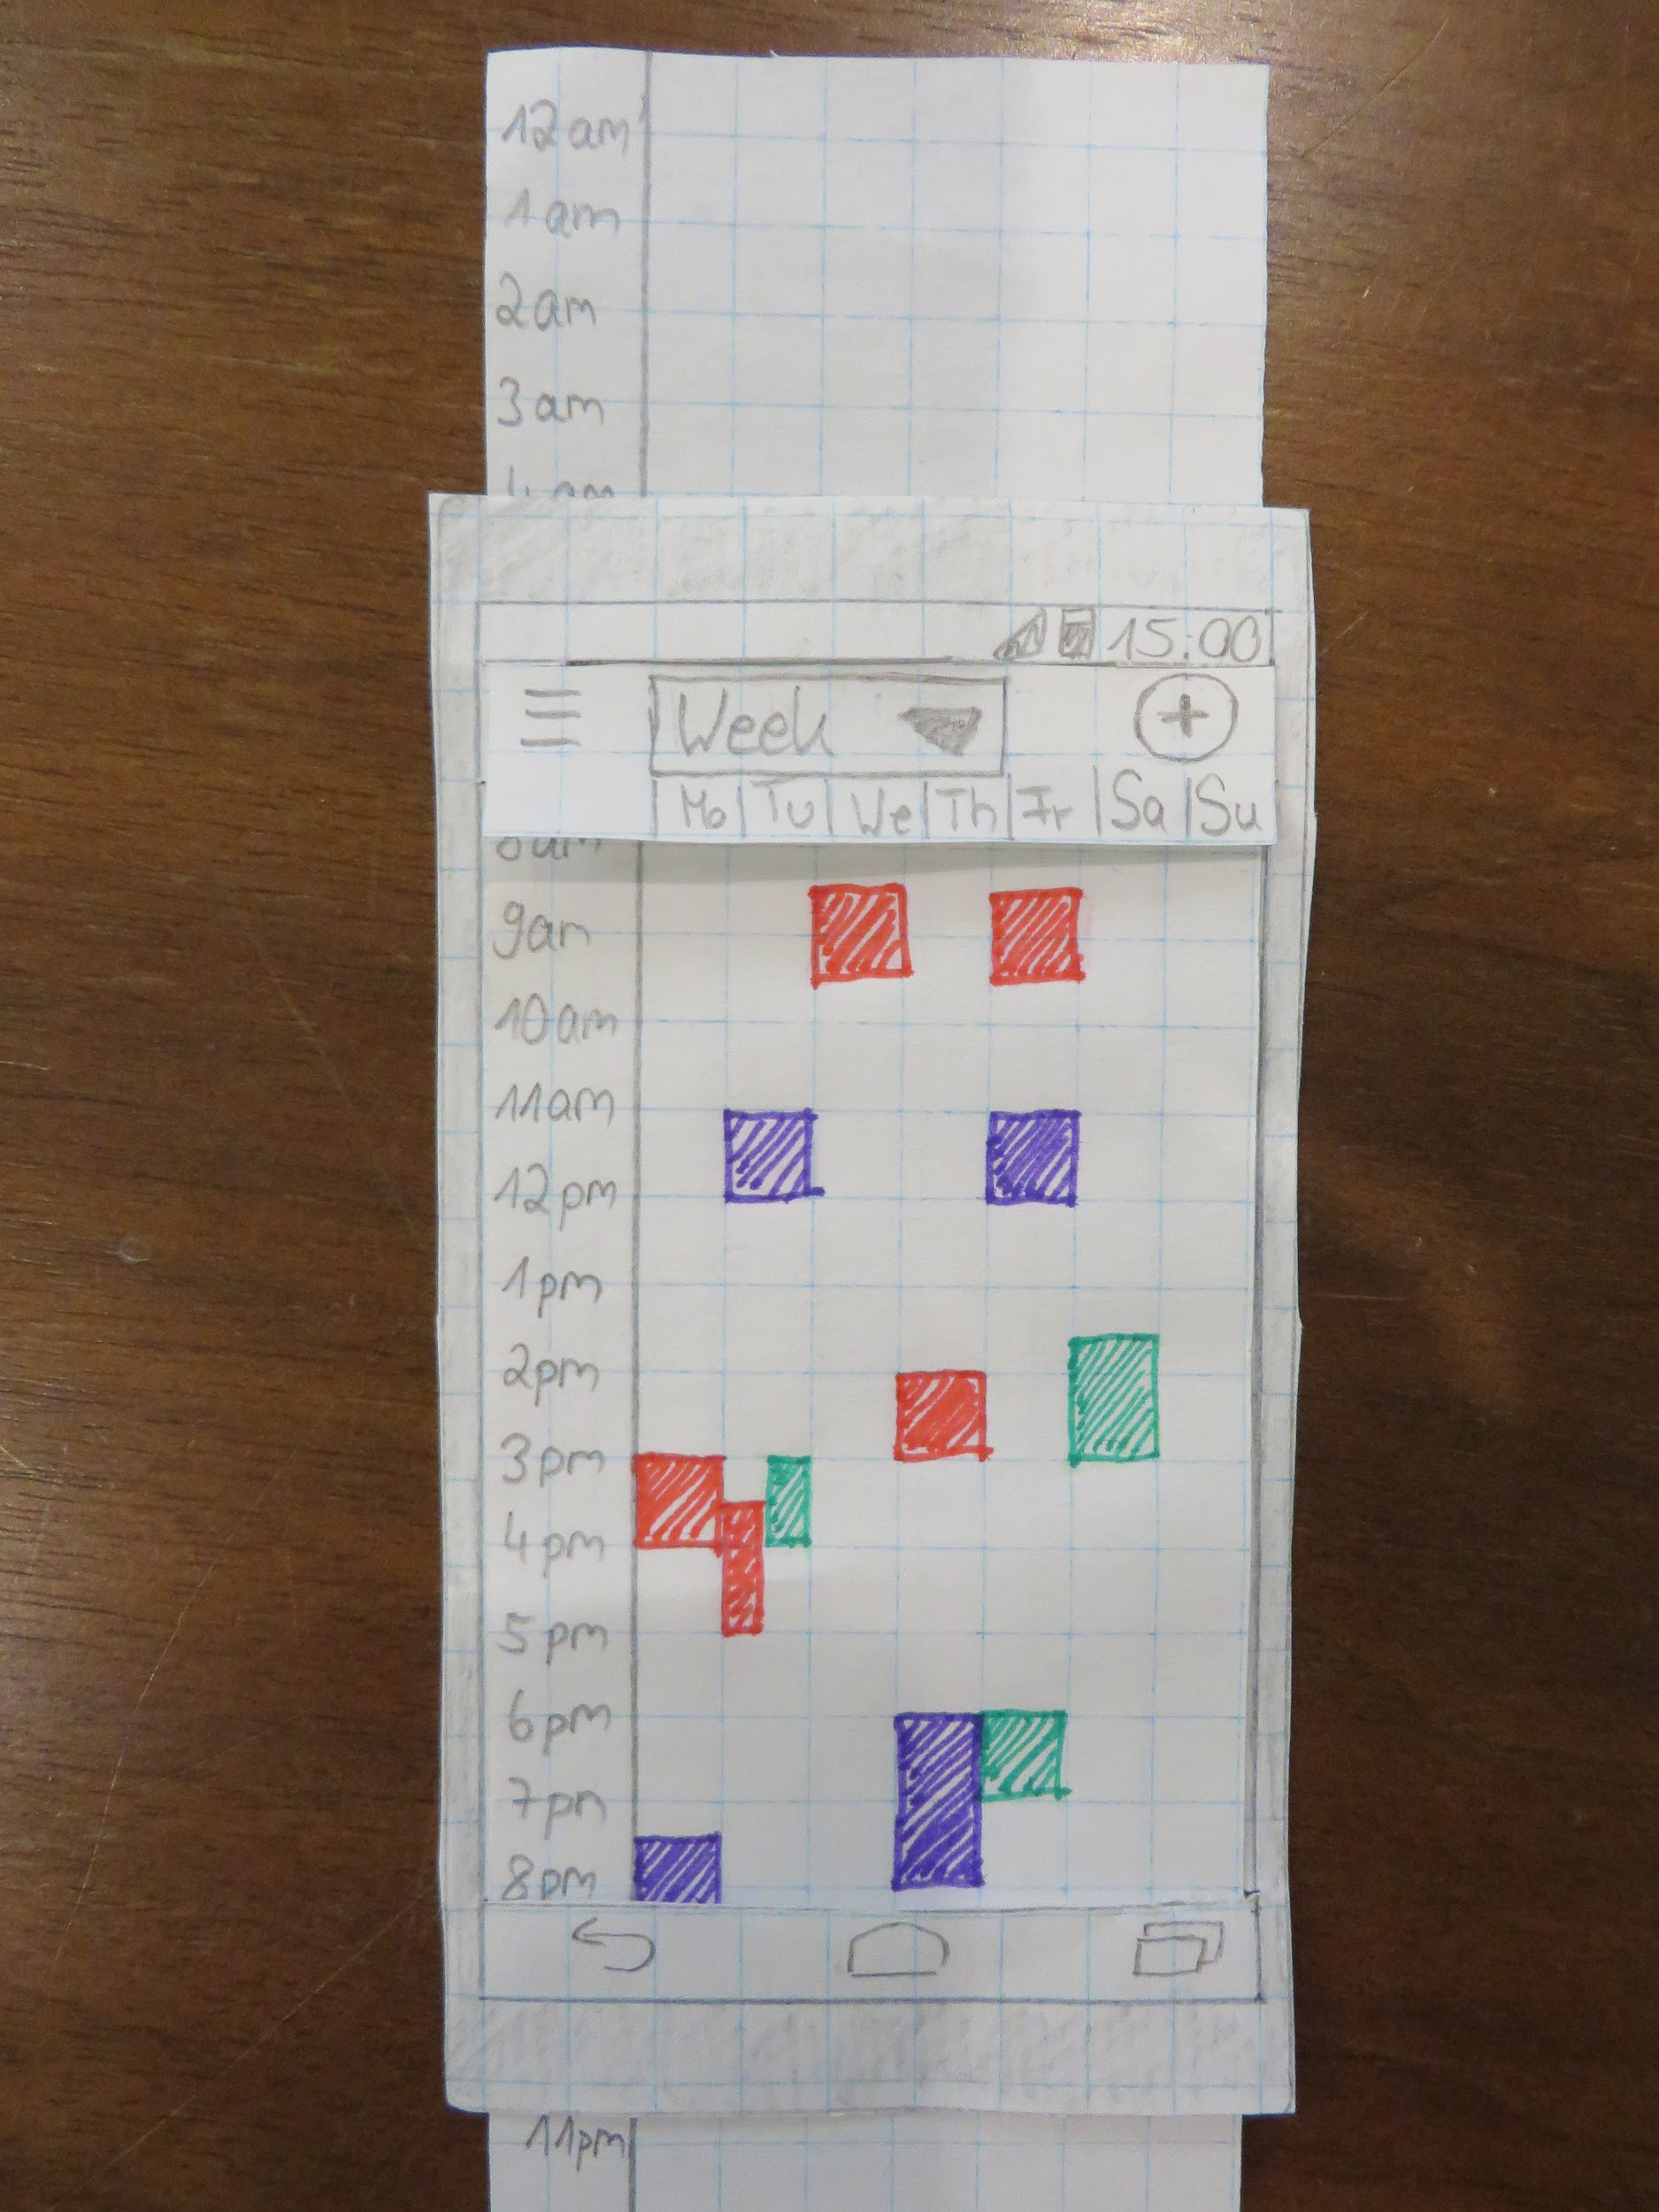 12am
1am
2am
3am
4am
15:00
Week
Mo Tu We Th Fr Sa Su
8am
9am
10am
11am
12pm
1pm
2pm
3pm
4pm
5pm
6pm
7pm
8pm
11pm